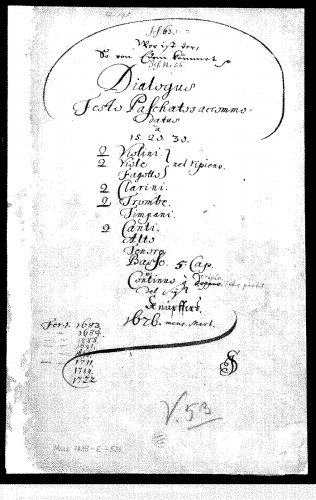 Wer ist der,
So von Edom kommet
Dialogus
Festo Paschatos accommo-
datus
à
15. 20. 30.
2 Violini
2 Viole nel ripieno.
Fagotto
2 Clarini.
2 Trombe.
Timpani.
2 Canti.
Alto
Tenore
Basso 5. Cap.
Continuo
del Sigr
Knüpffers.
1676. mens. Mart.
1683.
1684.
1688.
1691.
1711.
1722
V. 53